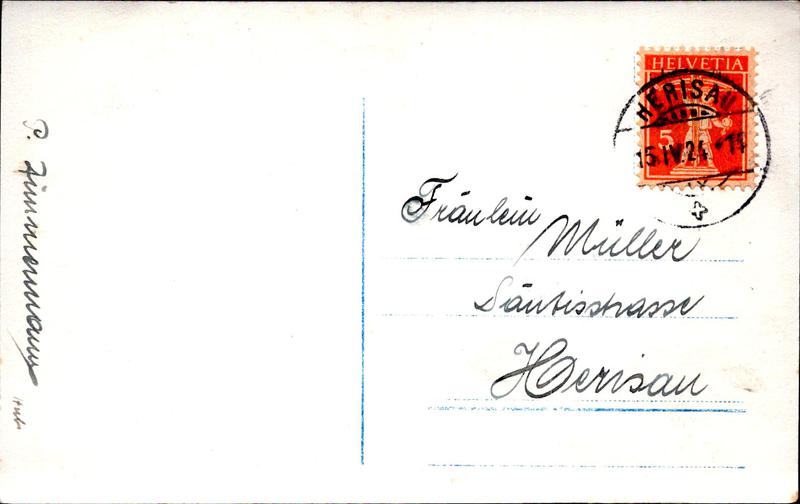 HELVETIA
5
HERISAU
15.IV.24
Fräulein
Müller
Säntisstrasse
Herisau
P. Zimmermann